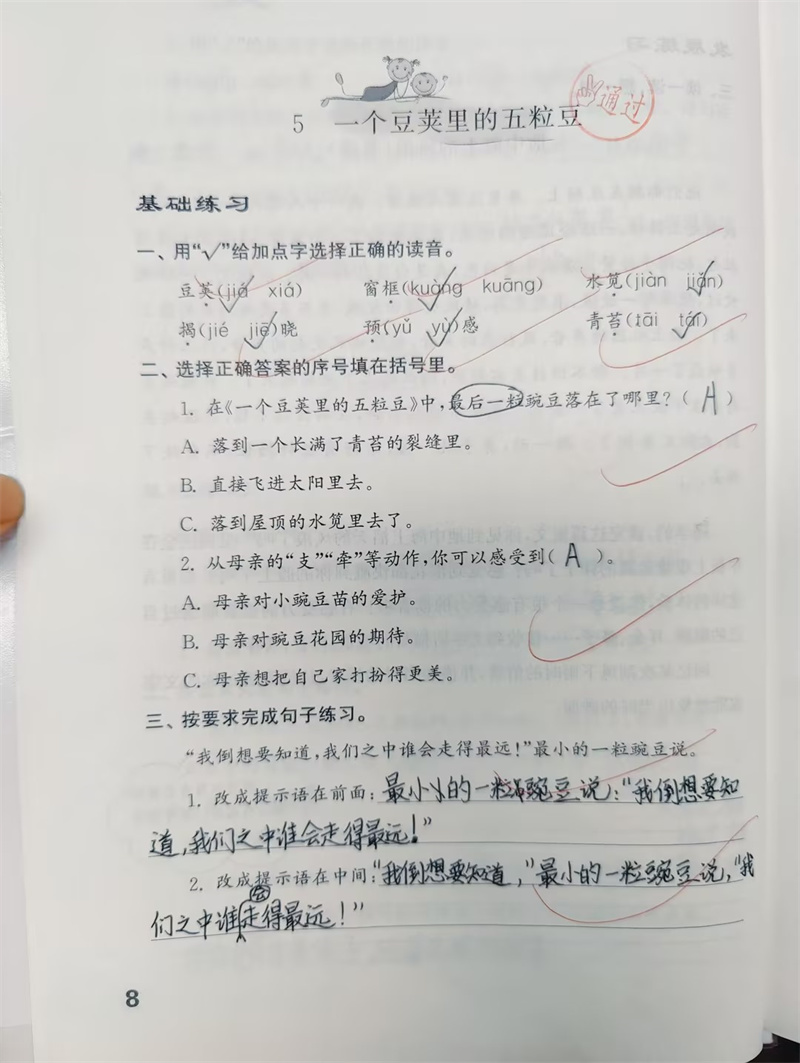 通过
5 一个豆荚里的五粒豆
基础练习
一、用“√”给加点字选择正确的读音。
豆荚(jiá xiá) 窗框(kuàng kuāng) 水笕(jiàn jiǎn)
揭(jié jiē)晓 预(yǔ yù)感 青苔(tāi tái)
二、选择正确答案的序号填在括号里。
1. 在《一个豆荚里的五粒豆》中,最后一粒豌豆落在了哪里?( A )
A. 落到一个长满了青苔的裂缝里。
B. 直接飞进太阳里去。
C. 落到屋顶的水笕里去了。
2. 从母亲的“支”“牵”等动作,你可以感受到( A )。
A. 母亲对小豌豆苗的爱护。
B. 母亲对豌豆花园的期待。
C. 母亲想把自己家打扮得更美。
三、按要求完成句子练习。
“我倒想要知道,我们之中谁会走得最远!”最小的一粒豌豆说。
1. 改成提示语在前面:最小的一粒豌豆说:“我倒想要知
道,我们之中谁会走得最远!”
2. 改成提示语在中间:“我倒想要知道,”最小的一粒豌豆说,“我
们之中谁会走得最远!”
8